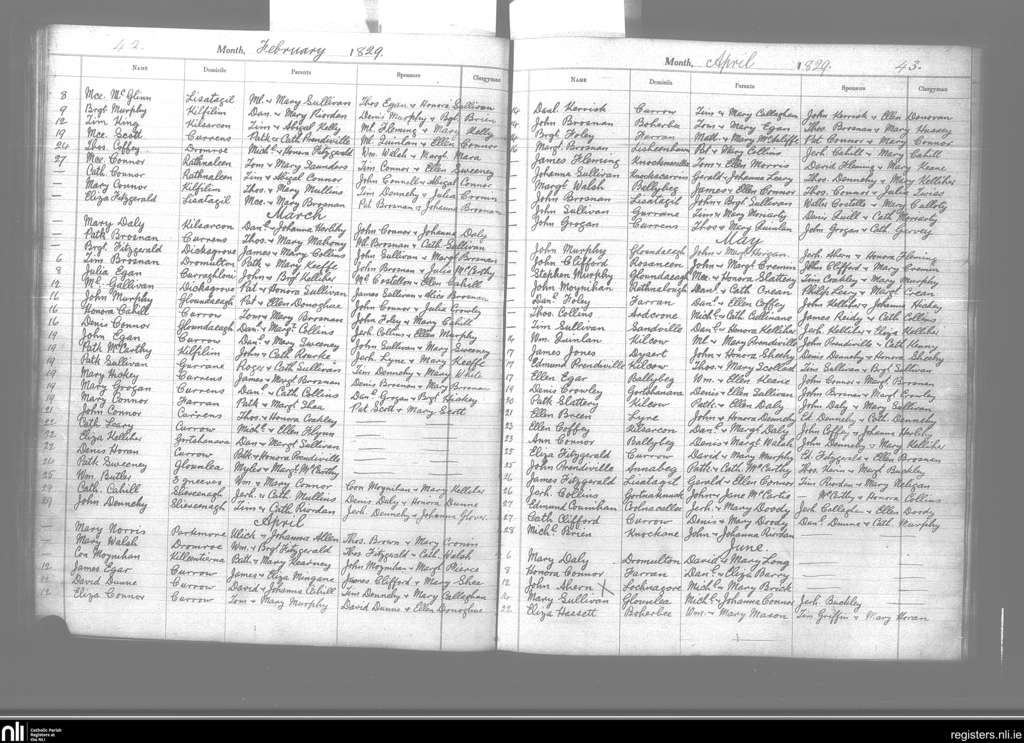 42.
Month, February 1829.
Name Domicile Parents Sponsors Clergyman
8 Mce. McGlinn Lisatagil Ml. & Mary Sullivan Thos Egan & Honora Sullivan
9 Brgt. Murphy Kilfilim Dan. & Mary Riordan Denis Murphy & Brgt. Brien
12 Tim King Kilsarcon Tim & Abigal Kelly Ml. Fleming & Mary Kelly
19 Mce. Scott Currens Patk & Cath Prendiville Ml. Quinlan & Ellen Connor
24 Ibn. Coffey Dromroe Mich. & Honora Fitzgerald Wm. Walsh & Margt. Mara
27 Mce. Connor Rathnleen Tom & Mary Saunders Tim Connor & Ellen Sweeney
— Cath. Connor Rathnleen Tim & Abigal Connor John Connell & Abigal Connor
— Mary Connor Kilfilim Thos. & Mary Mullins Tim Dennehy & Julia Cronin
— Eliza Fitzgerald Lisatagil Mce. & Mary Brosnan Pat Brosnan & Johanna Brosnan
March
— Mary Daly Kilsarcon Danl. & Johanna Horhby John Connor & Johanna Daly
— Patk Brosnan Currens Thos. & Mary Mahony Ml. Brosnan & Cath. Sullivan
— Brgt. Fitzgerald Dickagrove James & Mary Collins John Sullivan & Margt. Brosnan
6 Tim Brosnan Dromulton Patk & Mary Keeffe John Brosnan & Julia McCarthy
8 Julia Egan Curraghloni John & Brgt. Kelliher Ml. Costellon & Ellen Cahill
12 Ml. Gallivan Dickagrove Pat & Honora Sullivan James Sullivan & Alice Brosnan
16 John Murphy Gloundaeagh Pat & Ellen Donoghue John Connor & Julia Crowly
16 Honora Cahill Currow Tom & Mary Brosnan John Foley & Mary Cahill
16 Denis Connor Gloundaeagh Dan. & Margt. Collins Jerh. Collins & Ellen Murphy
19 John Egan Currow Danl. & Mary Sweeney John Sullivan & Mary Sweeney
19 Patk McCarthy Kilfilim John & Cath Rourke Jerh. Lyne & Mary Keeffe
19 Patk Sullivan Gurrane Roger & Cath Sullivan Tim Dennehy & Mary Walsh
19 Mary Hickey Currens James & Margt Brosnan Denis Brosnan & Mary Brosnan
19 Mary Grogan Currens Dan. & Cath Collins Danl. Grogan & Brgt Hickey
19 Mary Connor Farran Patk & Margt Shea Pat Scott & Mary Scott
21 John Connor Currens Thos. & Honora Coakley
21 Cath Leary Currow Michl. & Ellen Flynn
22 Eliza Kelliher Gortshanava Dan & Margt Sullivan
22 Denis Horan Currow Patk & Honora Prendiville
24 Patk Sweeney Glounlea Myles & Margt McCarthy
25 Wm. Butler 3 gneeves Wm. & Mary Connor Con Moynihan & Mary Kelleher
29 Cath. Cahill Slievenagh Jerh. & Cath Mullins Denis Daly & Honora Dunne
29 John Dennehy Slievenagh Tim & Cath Riordan Jerh. Dennehy & Johanna Glover
April
— Mary Norris Parkmore Ulick & Johanna Allen Thos. Brown & Mary Cronin
— Mary Walsh Dromroe Wm. & Brgt Fitzgerald Thos Fitzgerald & Cath. Walsh
— Con Moynihan Killeentierna Patk. & Mary Kearney John Moynihan & Margt Pierce
12 James Egar Currow James & Eliza Mingane James Clifford & Mary Shea
12 David Dunne Currow David & Johanna Cahill Tim Dennehy & Mary Callaghan
12 Eliza Connor Currow Tom & Mary Murphy David Dunne & Ellen Donoghue
Month, April 1829. 43.
Name Domicile Parents Sponsors Clergyman
14 Danl. Kerrisk Currow Tim & Mary Callaghan John Kerrisk & Ellen Donovan
John Brosnan Boherbee Tom & Mary Egan Thos Brosnan & Mary Hussey
Brgt Foley Farran Matt & Mary McAuliffe Pat Connor & Mary Connor
16 Margt. Brosnan Lisheenbawn Pat & Mary Collins Jerh. Cahill & Mary Cahill
— James Fleming Knockmanilla Tom & Ellen Morris David Fleming & Mary Keane
— Johanna Sullivan Knockacarrin Gerald & Johanna Leary Thos Dennehy & Mary Kelliher
— Margt Walsh Ballybeg James & Ellen Connor Thos. Connor & Julia
— John Brosnan Lisatagil John & Brgt Sullivan Walter Costello & Mary Callaty
— John Sullivan Gurrane Tim & Mary Moriarty Denis Quill & Cath Moriarty
— John Grogan Currens Thos & Mary Quinlan John Grogan & Cath Garvey
May
— John Murphy Gloundaeagh John & Margt Horgan Jerh. Ahern & Honora Fleming
— John Clifford Rosaneen John & Margt Cremin John Clifford & Mary Cremin
— Stephen Murphy Gloundaeagh Mce. & Honora Slattery Tim Crowley & Mary Murphy
— John Moynihan Rathnalough Danl. & Cath Crean Philip Levy & Margt Crean
— Danl. Foley Farran Danl. & Ellen Coffey John Kelliher & Johanna Hickey
— Thos. Collins Ardcrone Michl. & Cath Cullinane James Reidy & Cath Collins
— Tim Sullivan Sandville Danl. & Honora Kelliher Jerh. Kelliher & Eliza Kelliher
14 Wm. Quinlan Kilcow Ml & Mary Prendiville John Prendiville & Cath Heany
17 James Jones Dysert John & Honora Sheehy Denis Dennehy & Honora Sheehy
17 Edmund Prendiville Kilcow Thos. & Mary Scollard Tim Sullivan & Brgt Sullivan
17 Ellen Egar Ballybeg Wm. & Ellen Keane John Connor & Margt Brosnan
19 Denis Crowley Gortshanava Denis & Ellen Sullivan John Brosnan & Margt Crowley
20 Patk Slattery Kilcow Patk & Ellen Daly John Daly & Mary Sullivan
21 Ellen Breen Lyre John & Honora Dennehy Ed Dennehy & Cath. Dennehy
23 Ellen Coffey Kilsarcon Danl. & Margt Daly John Coffey & Johanna Horhby
23 Ann Connor Ballybeg Denis & Margt Walsh John Dennehy & Mary Kelliher
25 Eliza Fitzgerald Currow David & Mary Murphy Ed Fitzgerald & Ellen Brosnan
25 John Prendiville Annabeg Patk & Cath McCarthy Thos. Heirn & Margt Buckley
26 James Fitzgerald Lisatagil Gerald & Ellen Connor Tim Riordan & Mary Rehgan
26 Jerh. Collins Gortnahunnk John & Jane McCartie — McCarthy & Honora Collins
27 Edmund Counihan Coolnacalliee Jerh. & Mary Doody Jerh. Callaghan & Ellen Doody
27 Cath Clifford Currow Denis & Mary Doody Danl. Dunne & Cath Murphy
28 Michl. Brien Knockane John & Johanna Riordan
June
6 Mary Daly Dromulton David & Mary Long
8 Honora Connor Farran Danl. & Eliza Barry
12 John Ahern X Lochnagore Michl. & Mary Brick
14 Mary Sullivan Glounlea Michl. & Johanna Connor Jerh. Buckley
22 Eliza Hassett Boherbee Wm. & Mary Mason Tim Griffin & Mary Horan
nli Catholic Parish Registers at the NLI
registers.nli.ie